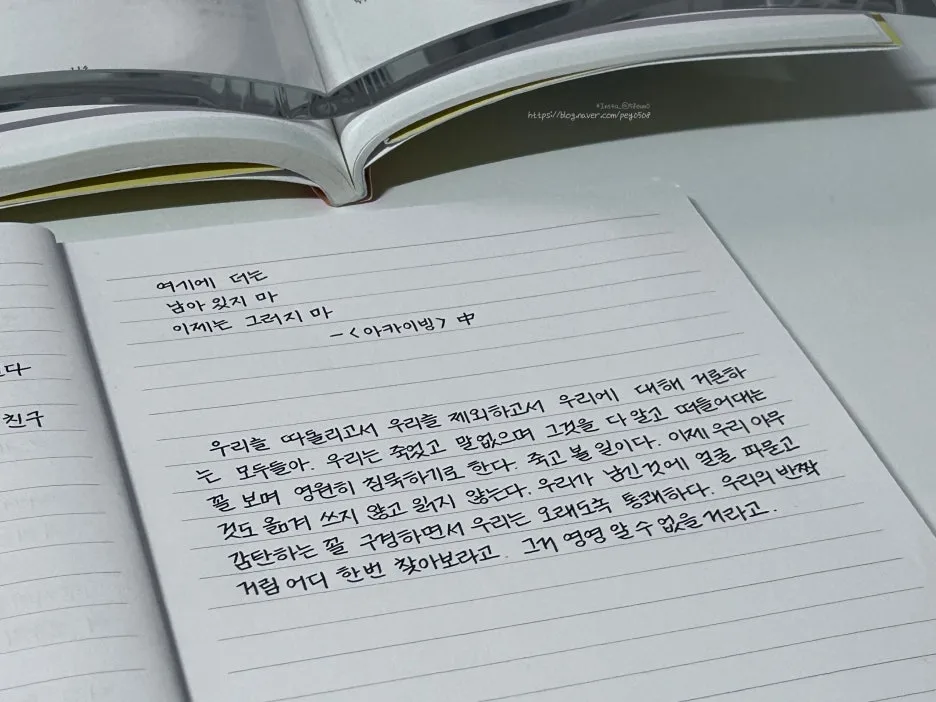 https://blog.naver.com/peyo508
여기에 더는
남아 있지 마
이제는 그러지 마
-<아카이빙> 中
우리를 따돌리고서 우리를 제외하고서 우리에 대해 거론하
는 모두들아. 우리는 죽었고 말없으며 그것을 다 알고 떠들어대는
꼴 보며 영원히 침묵하기로 한다. 죽고 볼 일이다. 이제 우리 아무
것도 옮겨 쓰지 않고 읽지 않는다. 우리가 남긴 것에 얼굴 파묻고
감탄하는 꼴 구경하면서 우리는 오래도록 통쾌하다. 우리의 반짝
거림 어디 한번 찾아보라고. 그거 영영 알 수 없을 거라고.
친구